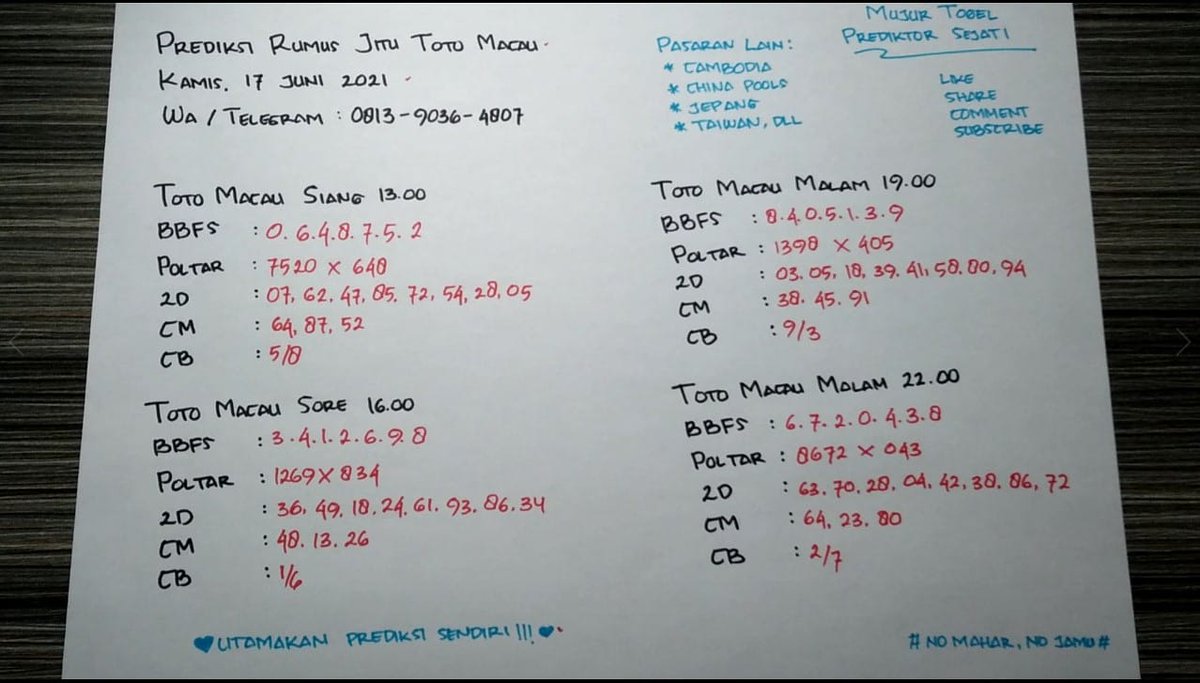 PREDIKSI RUMUS JITU TOTO MACAU.
KAMIS, 17 JUNI 2021
WA / TELEGRAM : 0813-9036-4807
PASARAN LAIN:
* CAMBODIA
* CHINA POOLS
* JEPANG
* TAIWAN, DLL
MUJUR TOGEL
PREDIKTOR SEJATI
LIKE
SHARE
COMMENT
SUBSCRIBE
TOTO MACAU SIANG 13.00
BBFS : 0.6.4.8.7.5.2
POLTAR : 7520 X 648
2D : 07, 62, 47, 85, 72, 54, 28, 05
CM : 64, 87, 52
CB : 5/8
TOTO MACAU SORE 16.00
BBFS : 3.4.1.2.6.9.8
POLTAR : 1269 X 834
2D : 36, 49, 18, 24, 61, 93, 86, 34
CM : 48. 13. 26
CB : 1/6
TOTO MACAU MALAM 19.00
BBFS : 8.4.0.5.1.3.9
POLTAR : 1398 X 405
2D : 03, 05, 18, 39, 41, 58, 80, 94
CM : 38. 45. 91
CB : 9/3
TOTO MACAU MALAM 22.00
BBFS : 6.7.2.0.4.3.8
POLTAR : 8672 X 043
2D : 63, 70, 28, 04, 42, 38, 86, 72
CM : 64, 23, 80
CB : 2/7
♥UTAMAKAN PREDIKSI SENDIRI!!!♥
# NO MAHAR, NO JAMU #